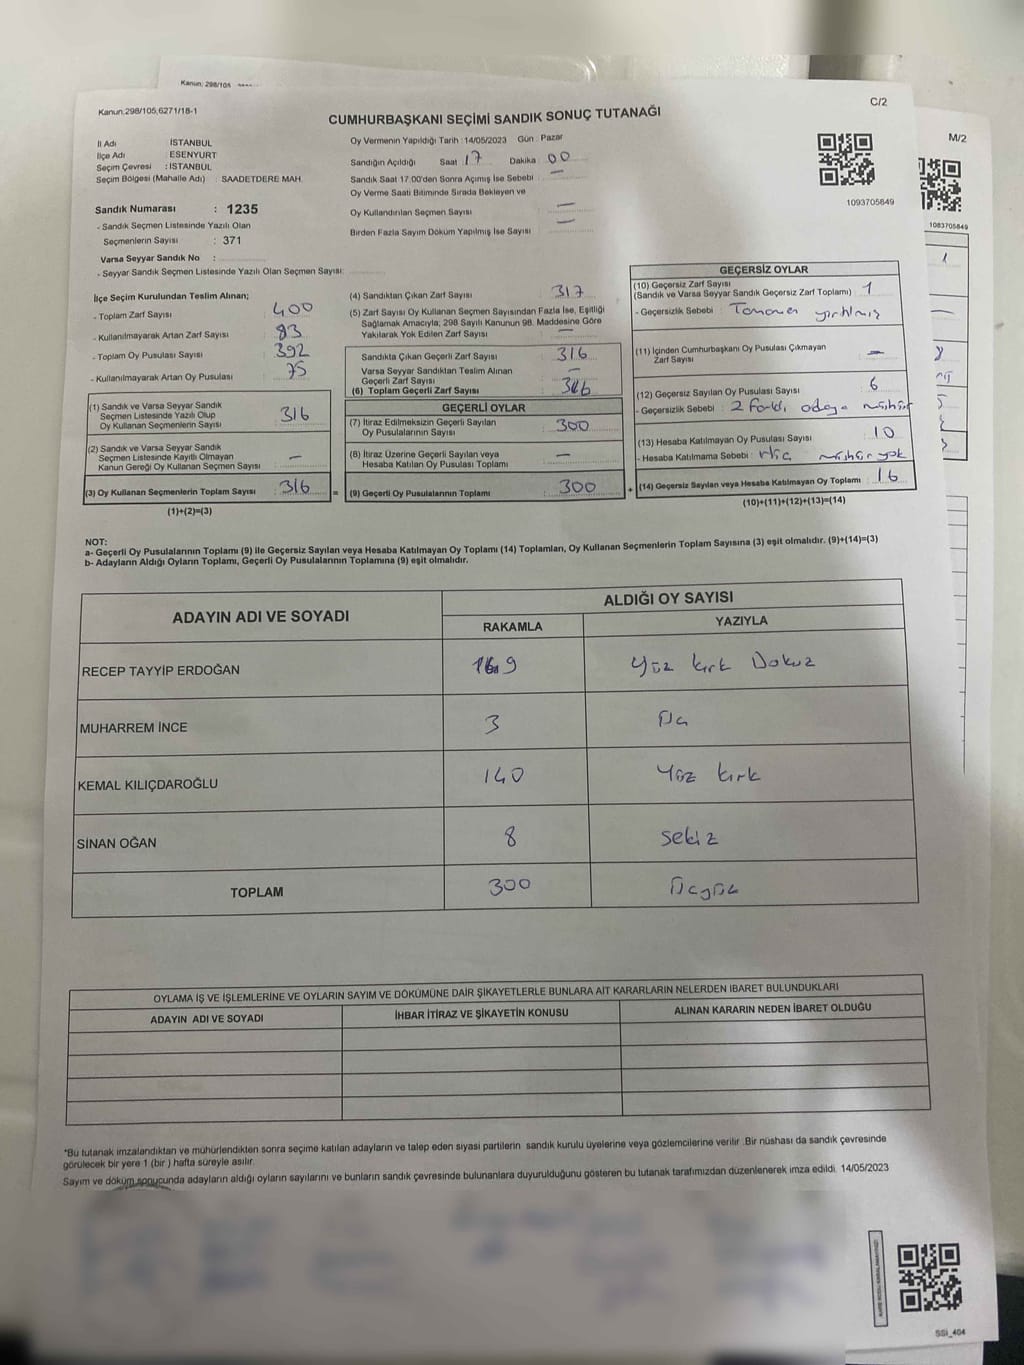 Kanun; 298/105
Kanun;298/105,6271/18-1
C/2
M/2
CUMHURBAŞKANI SEÇİMİ SANDIK SONUÇ TUTANAĞI
İl Adı : İSTANBUL
İlçe Adı : ESENYURT
Seçim Çevresi : İSTANBUL
Seçim Bölgesi (Mahalle Adı) : SAADETDERE MAH.
Oy Vermenin Yapıldığı Tarih :14/05/2023 Gün : Pazar
Sandığın Açıldığı Saat 17 Dakika 00
Sandık Saat 17:00'den Sonra Açımış İse Sebebi —
Oy Verme Saati Bitiminde Sırada Bekleyen ve
Oy Kullandırılan Seçmen Sayısı : —
Birden Fazla Sayım Döküm Yapılmış İse Sayısı : —
1093705849
1083705849
Sandık Numarası : 1235
- Sandık Seçmen Listesinde Yazılı Olan
Seçmenlerin Sayısı : 371
Varsa Seyyar Sandık No :
- Seyyar Sandık Seçmen Listesinde Yazılı Olan Seçmen Sayısı:
İlçe Seçim Kurulundan Teslim Alınan;
- Toplam Zarf Sayısı : 400
- Kullanılmayarak Artan Zarf Sayısı : 83
- Toplam Oy Pusulası Sayısı : 392
- Kullanılmayarak Artan Oy Pusulası : 75
(1) Sandık ve Varsa Seyyar Sandık
Seçmen Listesinde Yazılı Olup
Oy Kullanan Seçmenlerin Sayısı : 316
(2) Sandık ve Varsa Seyyar Sandık
Seçmen Listesinde Kayıtlı Olmayan
Kanun Gereği Oy Kullanan Seçmen Sayısı : —
(3) Oy Kullanan Seçmenlerin Toplam Sayısı : 316
(1)+(2)=(3)
(4) Sandıktan Çıkan Zarf Sayısı : 317
(5) Zarf Sayısı Oy Kullanan Seçmen Sayısından Fazla İse, Eşitliği
Sağlamak Amacıyla, 298 Sayılı Kanunun 98. Maddesine Göre
Yakılarak Yok Edilen Zarf Sayısı : —
Sandıkta Çıkan Geçerli Zarf Sayısı : 316
Varsa Seyyar Sandıktan Teslim Alınan
Geçerli Zarf Sayısı : —
(6) Toplam Geçerli Zarf Sayısı : 316
GEÇERLİ OYLAR
(7) İtiraz Edilmeksizin Geçerli Sayılan
Oy Pusulalarının Sayısı : 300
(8) İtiraz Üzerine Geçerli Sayılan veya
Hesaba Katılan Oy Pusulası Toplamı : —
= (9) Geçerli Oy Pusulalarının Toplamı : 300
GEÇERSİZ OYLAR
(10) Geçersiz Zarf Sayısı
(Sandık ve Varsa Seyyar Sandık Geçersiz Zarf Toplamı) : 1
- Geçersizlik Sebebi : Tamamen yırtılmış
(11) İçinden Cumhurbaşkanı Oy Pusulası Çıkmayan
Zarf Sayısı : —
(12) Geçersiz Sayılan Oy Pusulası Sayısı : 6
- Geçersizlik Sebebi : 2 farklı adaya mühür
(13) Hesaba Katılmayan Oy Pusulası Sayısı : 10
- Hesaba Katılmama Sebebi : Hiç mühür yok
+ (14) Geçersiz Sayılan veya Hesaba Katılmayan Oy Toplamı : 16
(10)+(11)+(12)+(13)=(14)
NOT:
a- Geçerli Oy Pusulalarının Toplamı (9) ile Geçersiz Sayılan veya Hesaba Katılmayan Oy Toplamı (14) Toplamları, Oy Kullanan Seçmenlerin Toplam Sayısına (3) eşit olmalıdır. (9)+(14)=(3)
b- Adayların Aldığı Oyların Toplamı, Geçerli Oy Pusulalarının Toplamına (9) eşit olmalıdır.
ADAYIN ADI VE SOYADI
ALDIĞI OY SAYISI
RAKAMLA YAZIYLA
RECEP TAYYİP ERDOĞAN Yüz kırk Dokuz
MUHARREM İNCE 3 Üç
KEMAL KILIÇDAROĞLU 140 Yüz kırk
SİNAN OĞAN 8 sekiz
TOPLAM 300 Üçyüz
OYLAMA İŞ VE İŞLEMLERİNE VE OYLARIN SAYIM VE DÖKÜMÜNE DAİR ŞİKAYETLERLE BUNLARA AİT KARARLARIN NELERDEN İBARET BULUNDUKLARI
ADAYIN ADI VE SOYADI İHBAR İTİRAZ VE ŞİKAYETİN KONUSU ALINAN KARARIN NEDEN İBARET OLDUĞU
*Bu tutanak imzalandıktan ve mühürlendikten sonra seçime katılan adayların ve talep eden siyasi partilerin sandık kurulu üyelerine veya gözlemcilerine verilir .Bir nüshası da sandık çevresinde
görülecek bir yere 1 (bir ) hafta süreyle asılır.
Sayım ve döküm sonucunda adayların aldığı oyların sayılarını ve bunların sandık çevresinde bulunanlara duyurulduğunu gösteren bu tutanak tarafımızdan düzenlenerek imza edildi. 14/05/2023
SSİ_404